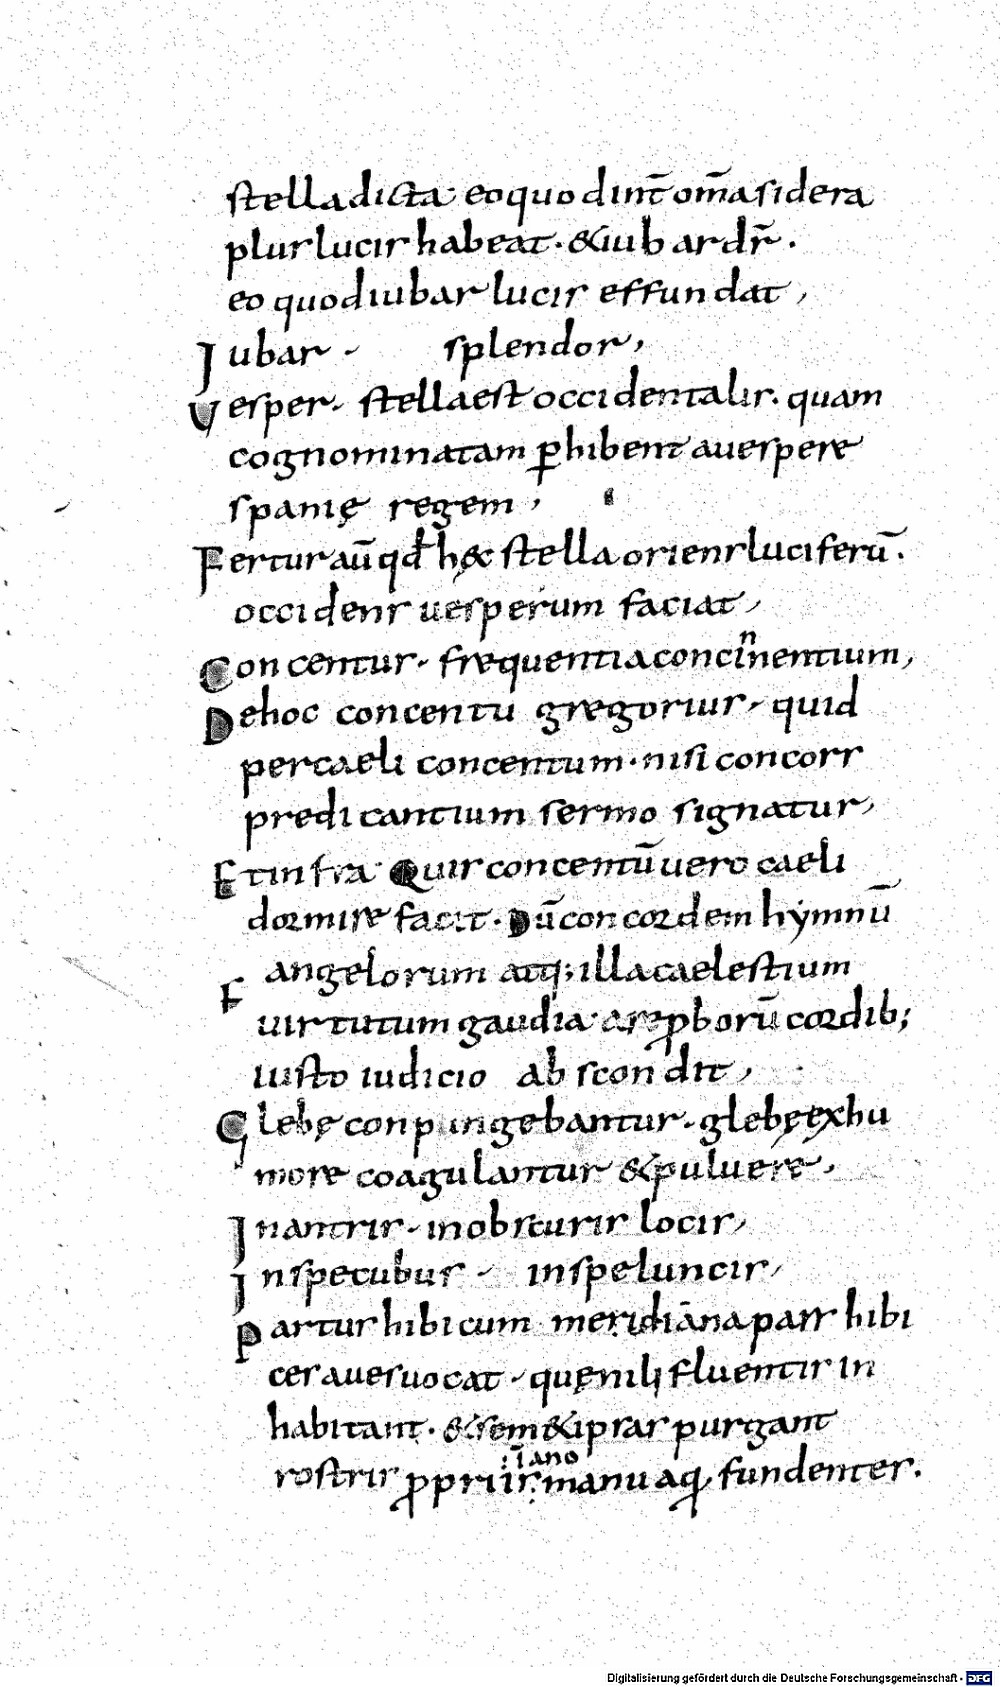 stella dicta· eo quod int̄ om̄a sidera
plus lucis habeat · & iubar dr̄ .
eo quod iubar lucis effundat ,
Iubar - splendor ,
Vesper - stella est occidentalis . quam
cognominatam ꝑhibent a uespere
spanię regem ,
Fertur aū qd̄ hęc stella oriens luciferū .
occidens uesperum faciat ,
Concentus - frequentia concinnentium ,
De hoc concentu gregorius - quid
per caeli concentum · nisi concors
predicantium sermo signatur ,
Et infra · Quis concentū uero caeli
dormire facit · Dū concordem hymnū
angelorum atq; illa caelestium
uirtutum gaudia· a reꝓborū cordib;
iusto iudicio abscondit ,
Glebę conpungebantur - glebę ex hu
more coagulantur & puluere ,
In antris - in obscuris locis ,
In specubus - in speluncis ,
Partus hibicum - meridiana pars hibi
ces aues uocat - quę nili fluentis in
habitant · & sem&ipsas purgant
iano
rostris ꝓpriis manu aq̄ fundentes .
Digitalisierung gefördert durch die Deutsche Forschungsgemeinschaft - DFG